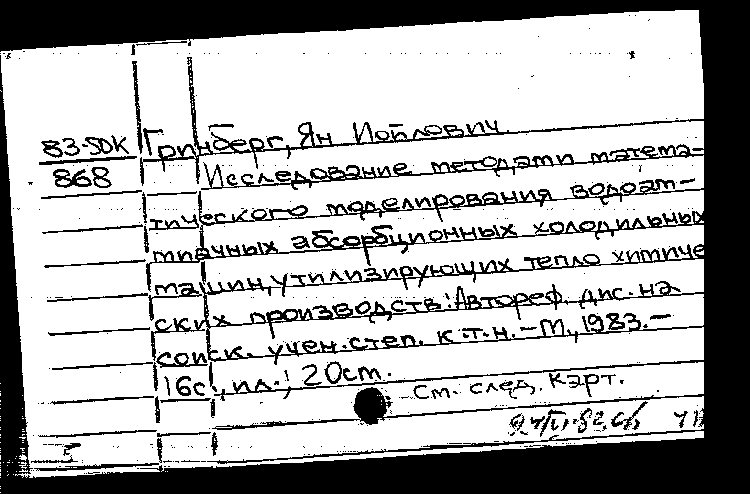 83-5DK Гринберг, Ян Иойлович
868 Исследование методами матема-
тического моделирования водоам-
миачных абсорбционных холодильных
машин, утилизирующих тепло химиче
ских производств: Автореф. дис. на
соиск. учен. степ. к.т.н. – М., 1983. –
16с., ил.; 20см.
См. след. карт.
5